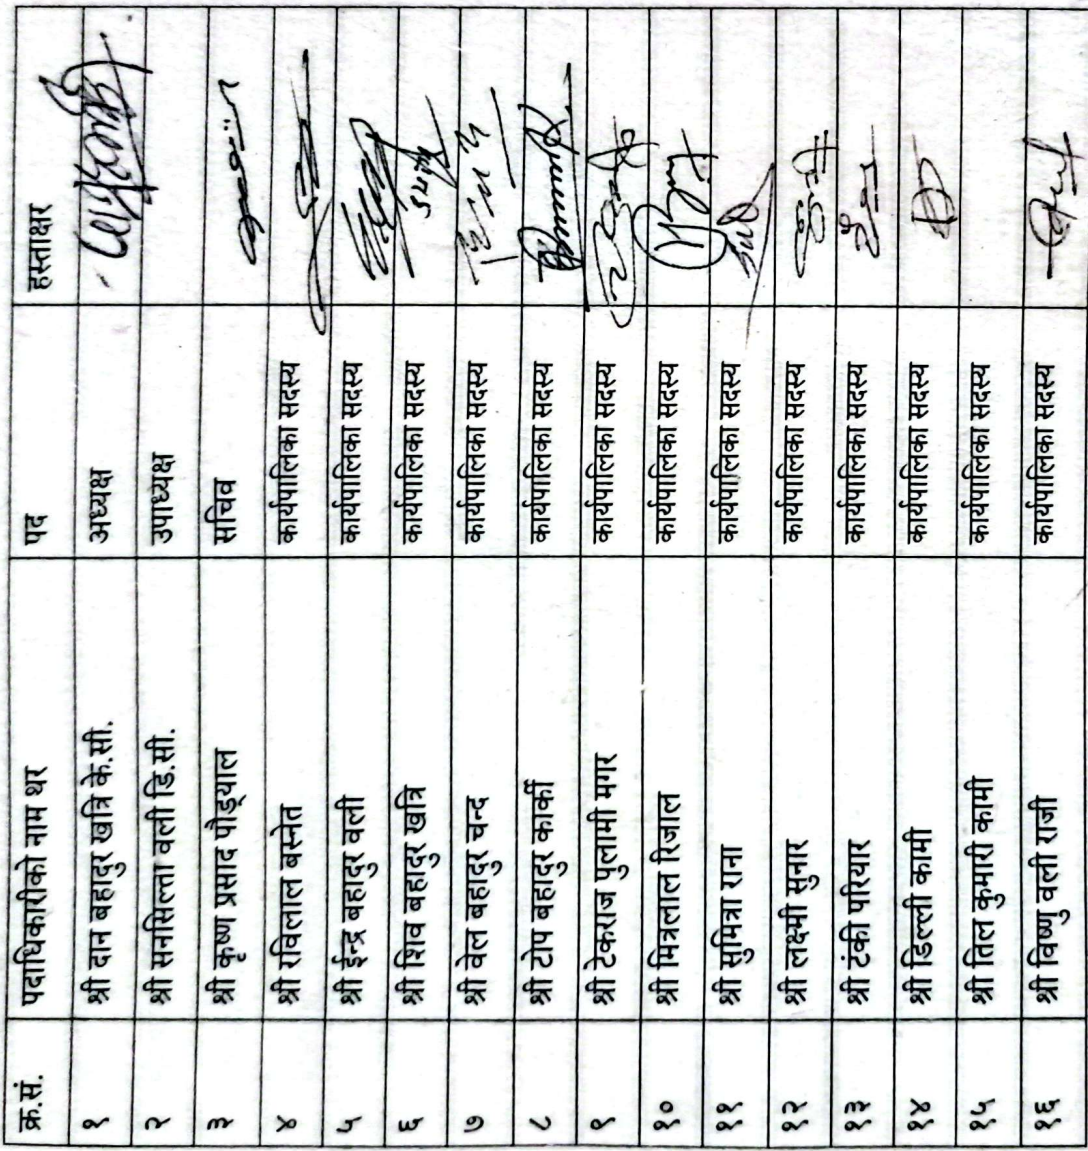 क्र.सं. पदाधिकारीको नाम थर पद हस्ताक्षर
१ श्री दान बहादुर खत्रि के.सी. अध्यक्ष
२ श्री सनसिल्ला वली डि.सी. उपाध्यक्ष
३ श्री कृष्ण प्रसाद पौड्याल सचिव
४ श्री रविलाल बस्नेत कार्यपालिका सदस्य
५ श्री ईन्द्र बहादुर वली कार्यपालिका सदस्य
६ श्री शिव बहादुर खत्रि कार्यपालिका सदस्य
७ श्री वेल बहादुर चन्द कार्यपालिका सदस्य
८ श्री टोप बहादुर कार्की कार्यपालिका सदस्य
९ श्री टेकराज पुलामी मगर कार्यपालिका सदस्य
१० श्री मित्रलाल रिजाल कार्यपालिका सदस्य
११ श्री सुमित्रा राना कार्यपालिका सदस्य
१२ श्री लक्ष्मी सुनार कार्यपालिका सदस्य
१३ श्री टंकी परियार कार्यपालिका सदस्य
१४ श्री डिल्ली कामी कार्यपालिका सदस्य
१५ श्री तिल कुमारी कामी कार्यपालिका सदस्य
१६ श्री विष्णु वली राजी कार्यपालिका सदस्य